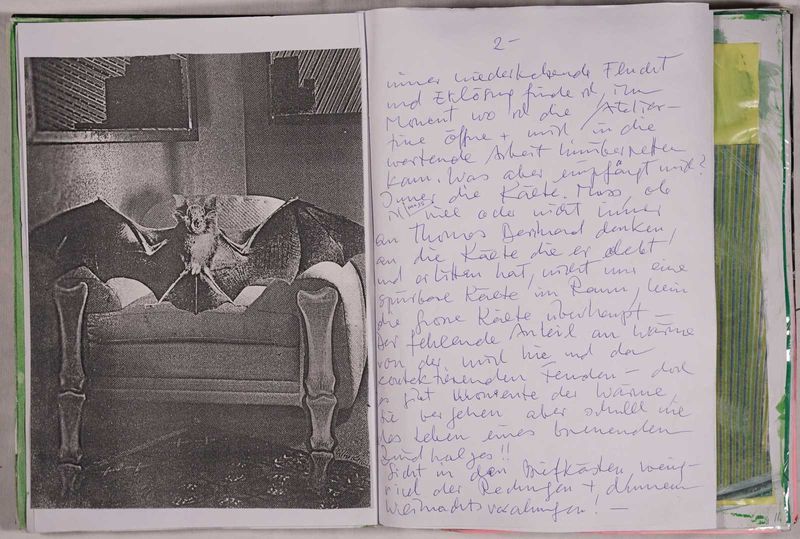 2-
immer wiederkehrende Flucht
und Erlösung finde ich, im
Moment wo ich die Atelier-
türe öffne + mich in die
wartende Arbeit hinüberretten
kann. Was aber empfängt mich?
Immer die Kälte. Muss ob
ich will oder nicht immer
an Thomas Bernhard denken,
an die Kälte die er erlebt,
und erlitten hat, nicht nur eine
spürbare Kälte im Raum, nein
die grosse Kälte überhaupt –
Der fehlende Anteil an Wärme
von der mich hie und da
kontaktierenden Fernden – doch
es gibt Momente der Wärme,
sie vergehen aber schnell wie
das Leben eines brennenden
Zündholzes!!
Sicht in den Briefkasten, wenig
und der Rechnungen + dummen
Weihnachts !–